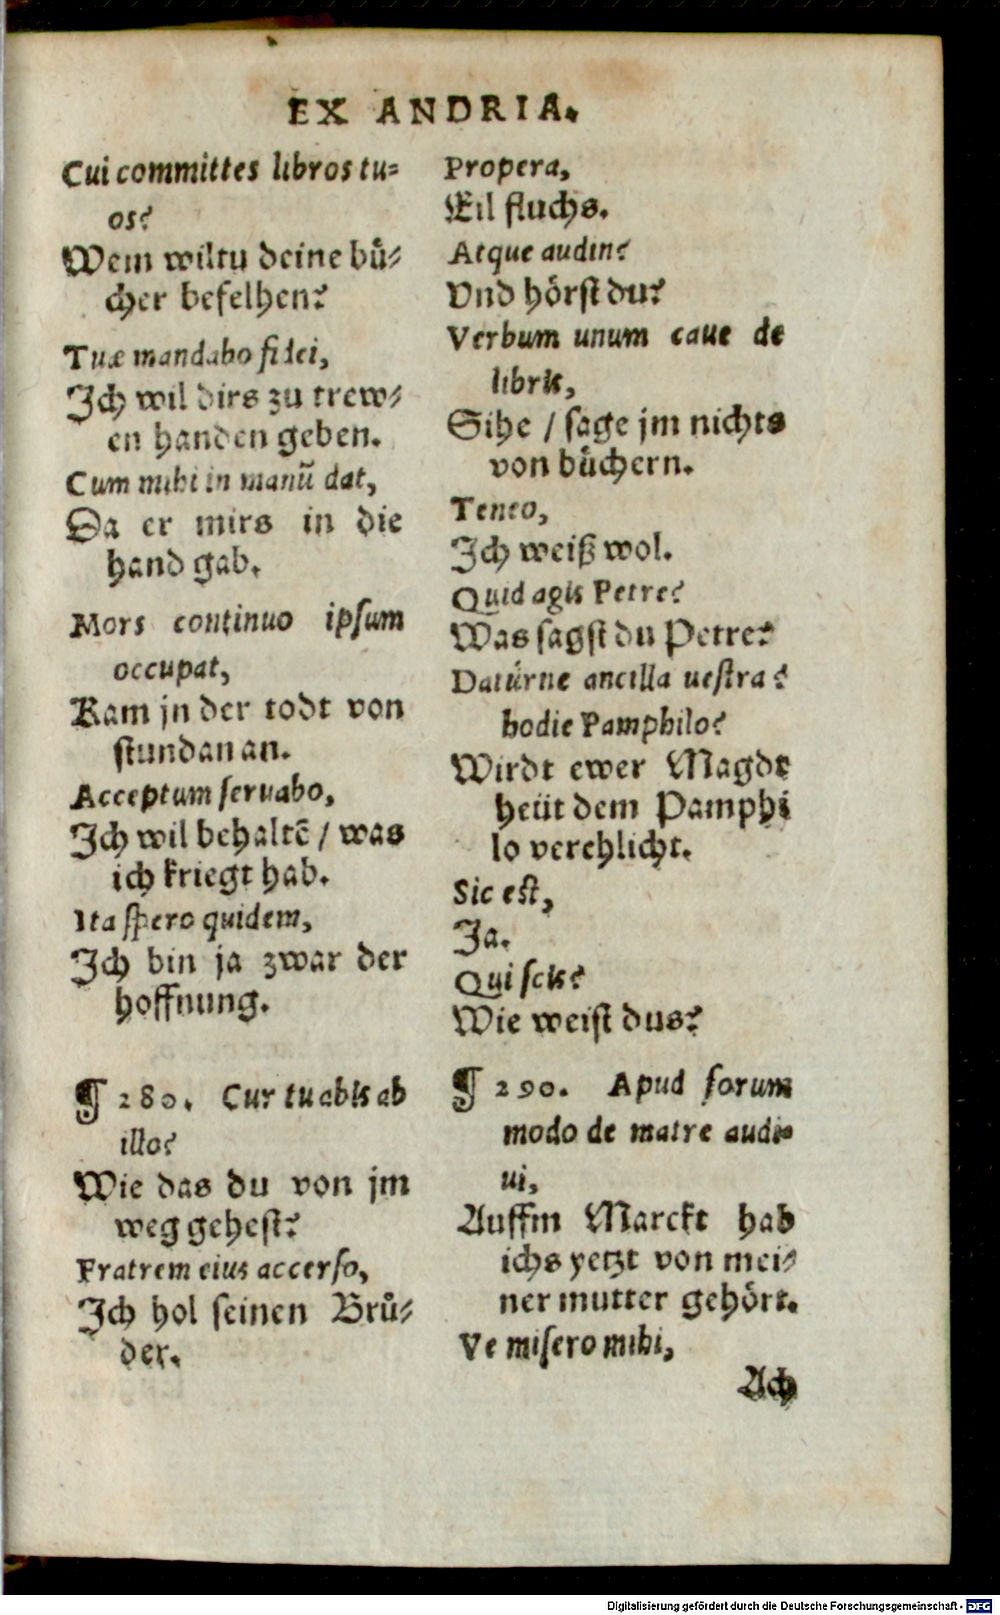 EX ANDRIA.
Cui committes libros tu=
os?
Wem wiltu deine buͤ⸗
cher befelhen?
Tuæ mandabo fidei,
Ich wil dirs zu trew⸗
en handen geben.
Cum mihi in manũ dat,
Da er mirs in die
hand gab.
Mors continuo ipſum
occupat,
Kam jn der todt von
ſtundan an.
Acceptum ſeruabo,
Ich wil behaltẽ / was
ich kriegt hab.
Ita ſpero quidem,
Ich bin ja zwar der
hoffnung.
¶ 280. Cur tu abis ab
illo?
Wie das du von jm
weg geheſt?
Fratrem eius accerſo,
Ich hol ſeinen Bruͤ⸗
der.
Propera,
Eil fluchs.
Atque audin?
Vnd hoͤrſt du?
Verbum unum caue de
libris,
Sihe / ſage jm nichts
von buͤchern.
Teneo,
Ich weiß wol.
Quid agis Petre?
Was ſagſt du Petre?
Datúrne ancilla ueſtra
hodie Pamphilo?
Wirdt ewer Magdt
heüt dem Pamphi
lo verehlicht.
Sic eſt,
Ja.
Qui ſcis?
Wie weiſt dus?
¶ 290. Apud forum
modo de matre audi=
ui,
Auffm Marckt hab
ichs yetzt von mei⸗
ner mutter gehoͤrt.
Ve miſero mihi,
Ach
Digitalisierung gefördert durch die Deutsche Forschungsgemeinschaft - DFG